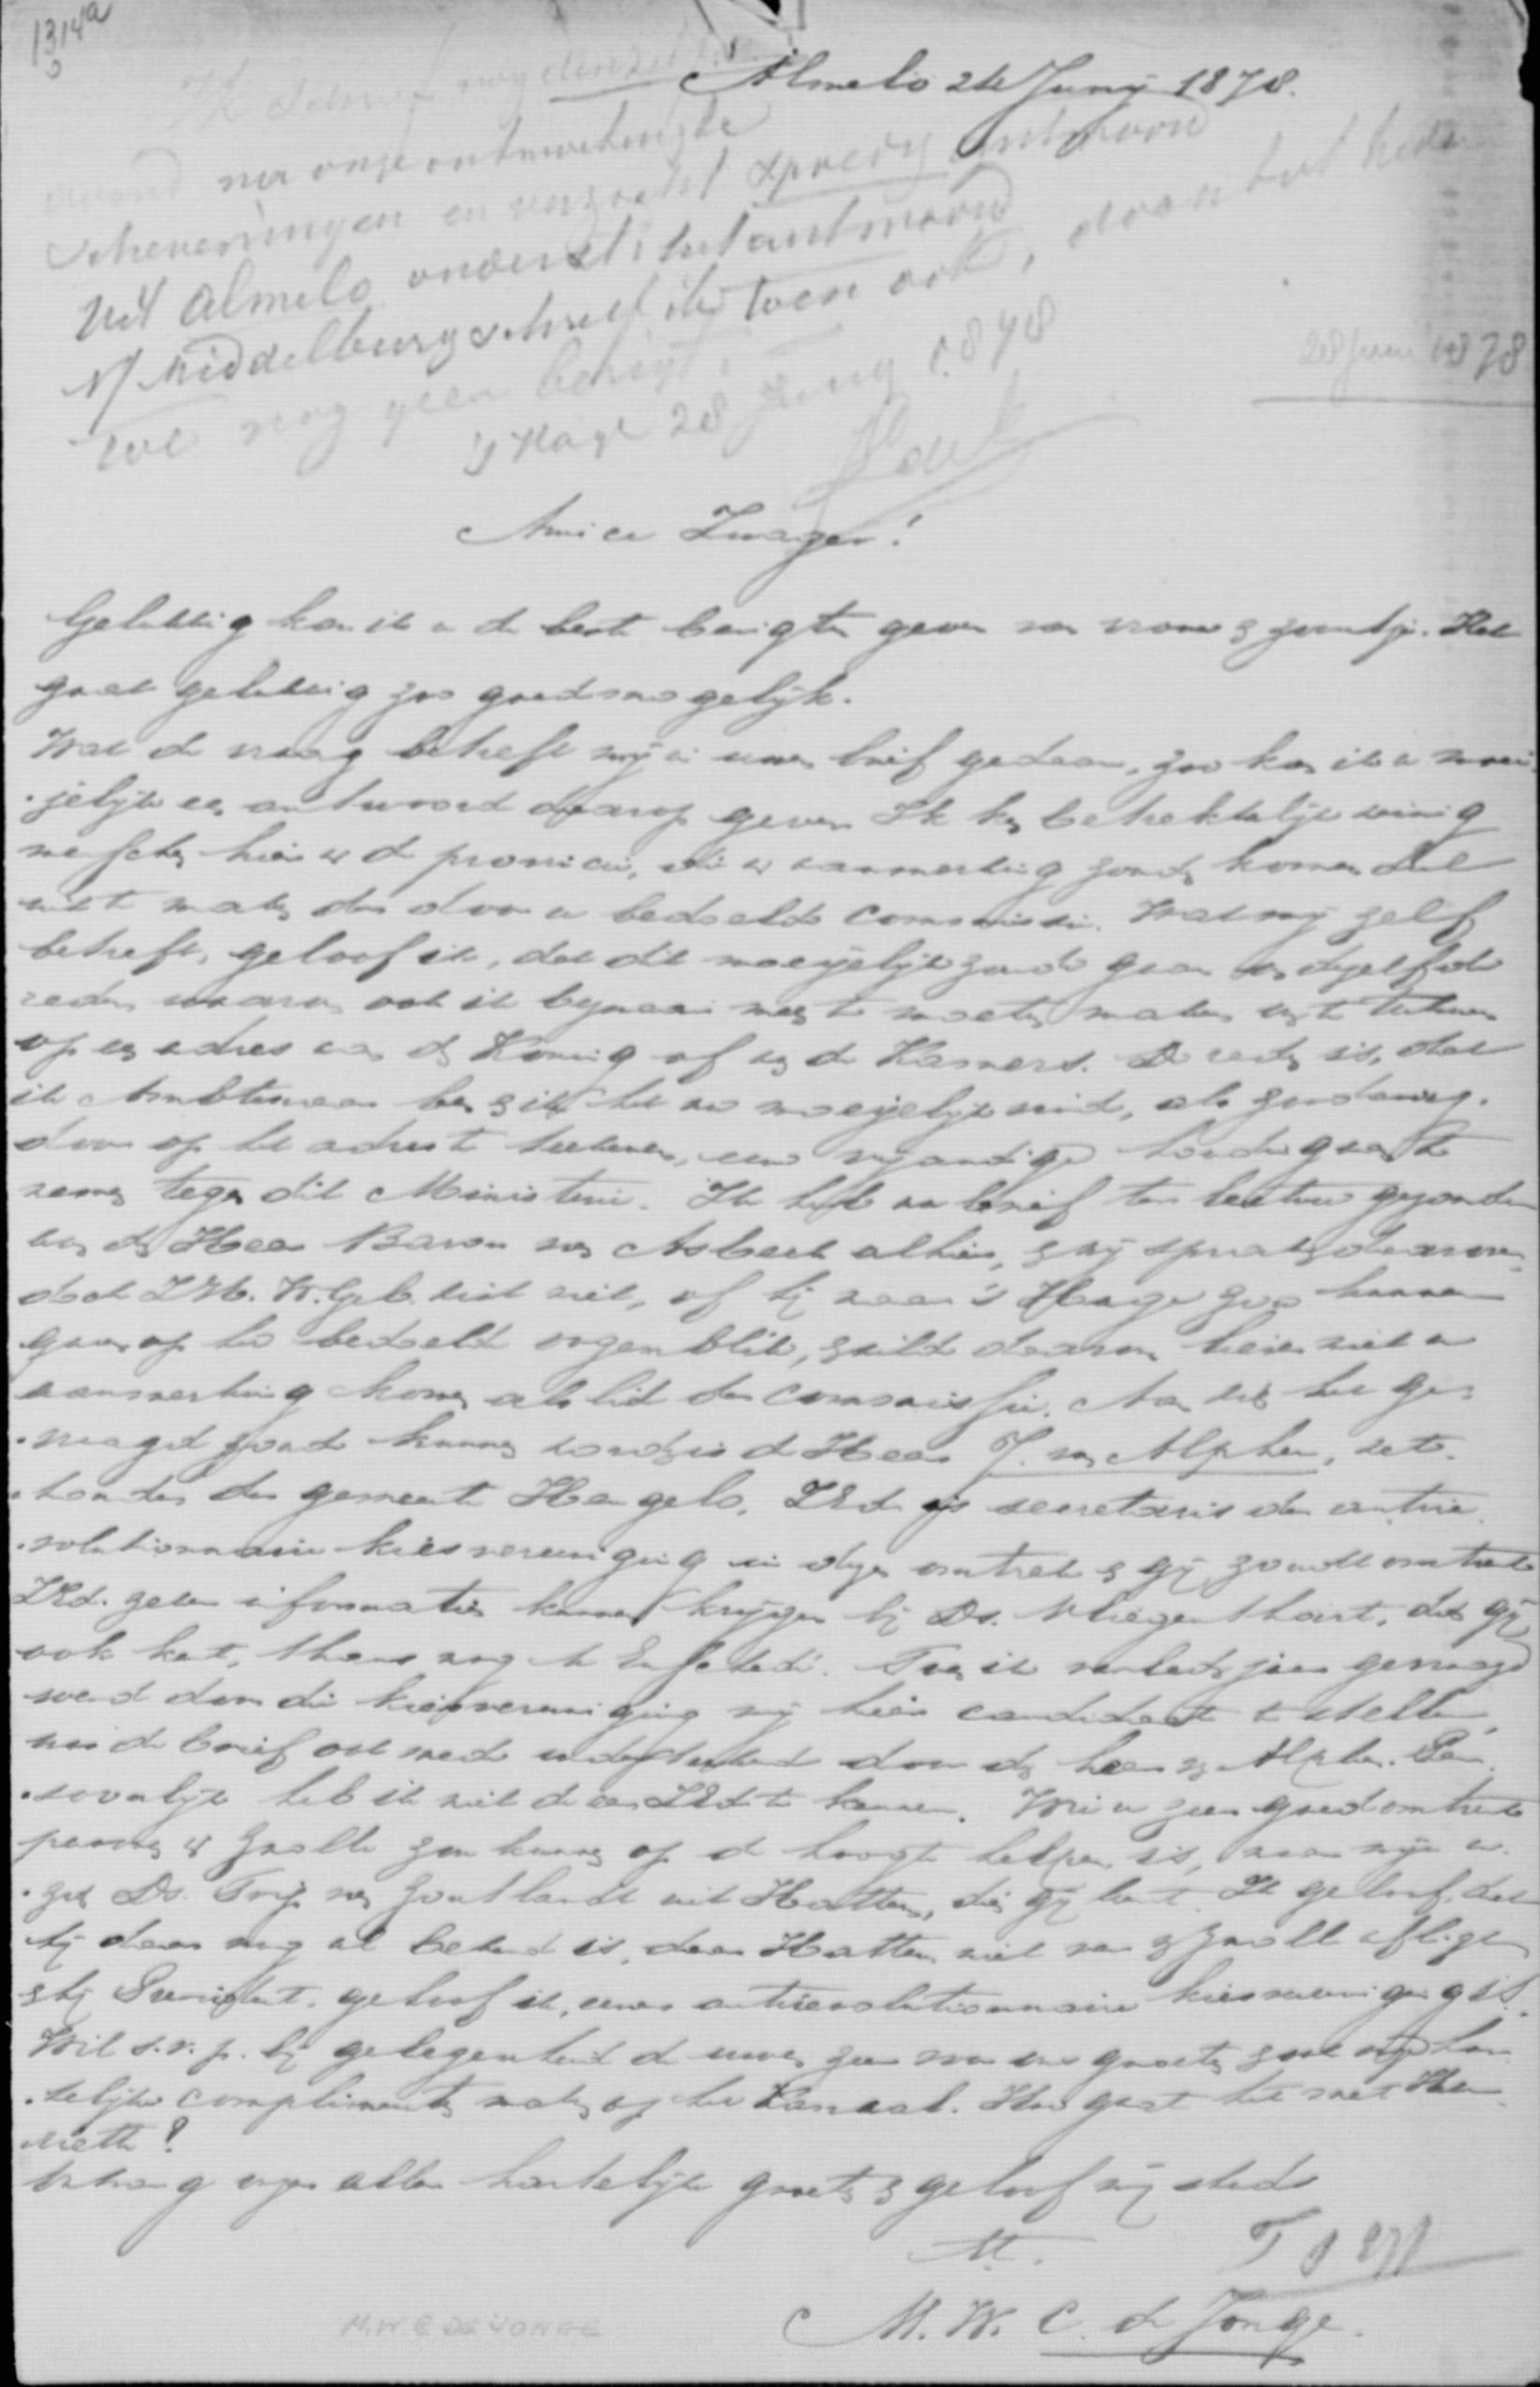 1314a
Almelo 26 Juny 1878.
Ik schreef nog denzelfden
avond na onze ontmoeting te
Scheveningen en verzocht spoedig antwoord
Uit Almelo onderstd het antwoord
N/ Middelburg schreef ik toen ook, doch tot heden
toe nog geen berigt.
's Hage 28 Juny 1878
28 Juni 1878
Amice Zwager!
Gelukkig kan ik u de beste berigten geven van vrouw & zoontje. Het
gaat gelukkig zoo goed mogelijk.
Wat de vraag betreft mij in uwen brief gedaan, zoo kan ik u moei
-jelijk een antwoord daarop geven. Ik ken betrekkelijk weinig
menschen hier in de provincie, die in aanmerking zouden komen deel
uit te maken der door u bedoelde commissie. Wat mij zelf
betreft, geloof ik, dat dit moeyelijk zoude gaan om dezelfde
reden waarom ook ik bezwaar meen te moeten maken te teekenen
op een adres aan den Koning of aan de Kamers. De reden is, dat
ik Ambtenaar ben & ik het zeer moeijelijk vind, als zoodanig.
door op het adres te teekenen, eene vijandige houding aan te
nemen tegen dit Ministerie. Ik heb uw brief ter lecture gezonden
aan den Heer Baron van Asbeck alhier, & wij spraken daarover,
doch Z.H.W.Geb. wist niet, of hij naar 's Hage zou kunnen
gaan op het bedoelde oogenblik, & wilde daarom liever niet in
aanmerking komen als lid der commissie. Aan wie het ge-
-vraagd zoude kunnen worden is de Heer J. van Alphen, wet-
-houder der gemeente Hengelo. ZEd is secretaris der antire-
-volutionnaire kiesvereeniging in dezen omtrek & gij zoudt omtrent
ZEd. zeker informatien kunnen krijgen bij Ds. Vliegenthart, dien gij
ook kent, thans nog te Enschede. Toen ik verleden jaar gevraagd
werd door die kiesvereeniging mij hier candidaat te stellen,
was de brief ook mede onderteekend door den heer van Alphen. Per-
-soonlijk heb ik niet de eer ZEd te kennen. Wie u zeer goed omtrent
personen in Zwolle zou kunnen op de hoogte helpen is, naar mijn in-
-zien Ds. Trip van Zoutlandt uit Hattem, dien gij kent. Ik geloof, dat
hij daar nog al bekend is, daar Hattem niet ver van Zwolle afligt
& hij President, geloof ik, eener antirevolutionnaire kiesvereeniging is.
Wil s.v.p. bij gelegenheid de uwen zeer van ons groeten & ook mijn har-
-telijke complimenten maken op het Kanaal. Hoe gaat het met Hen-
-riette?
Ontvang van allen hartelijke groeten & geloof mij steeds
M. W. C. de Jonge.
M.W.C. DE JONGE